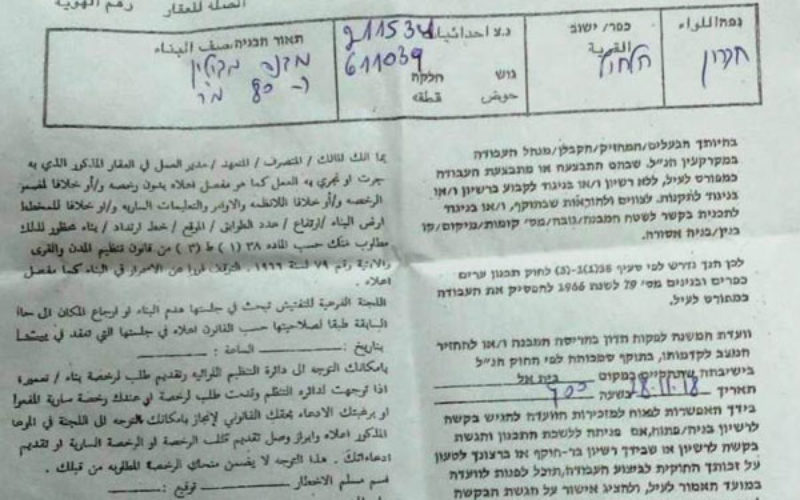 الصلة للعقار رقم الهوية
נפה/اللواء
חברון
כפר/ ישוב
القرية
חלחול
נ.צ احداثيات 211534
611039
גוש חלקה
حوض قطعه
תאור הבניה/صف البناء
מבנה מגורים
כ- 80 מ"ר
בהיותך הבעלים/המחזיק/הקבלן/מנהל העבודה
במקרקעין הנ"ל. שבהם התבצעה או מתבצעת העבודה
כמפורט לעיל, ללא רשיון ו/או בניגוד לקבוע ברשיון ו/או
בניגוד לתקנות. לצווים ולהוראות שבתוקף, ו/או בניגוד
לתכנית בקשר לשטח המבנה/גובה/מס' קומות/מיקום/קו
בנין/בניה אסורה.
לכן הנך נדרש לפי סעיף 38(1)-(3) לחוק תכנון ערים
כפרים ובנינים מס' 79 לשנת 1966 להפסיק את העבודה
כמפורט לעיל.
וועדת המשנה לפקוח תדון בהריסת המבנה ו/או להחזיר
המצב לקדמותו, בתוקף סמכותה לפי החוק הנ"ל
בישיבתה שתתקיים במקום בית אל
תאריך 28.11.18 בשעה
בידך האפשרות לפנות למזכירות הוועדה להגיש בקשה
לרשיון בניה/פתוח, אם פניתה ללשכת התכנון והגשת
בקשה לרשיון או שבידך רשיון בר-תוקף או ברצונך לטעון
על זכותך החוקית לביצוע העבודה, תוכל לפנות לוועדה
במועד האמור לעיל, ולהציג אישור על הגשת הבקשה
بما انك المالك / المتصرف / المتعهد / مدير العمل في العقار المذكور الذي به
جرت او تجري به العمل كما هو مفصل اعلاه بدون رخصه و/أو خلافا
الرخصه و/أو خلافا للانظمه والاوامر والتعليمات الساريه و/او خلافا للمخطط
ارض البناء /ارتفاع / عدد الطوابق / الموقع / خط ارتداد / بناء محظور لذلك
مطلوب منك حسب الماده ٣٨ (١) ط (٣) من قانون تنظيم المدن والقرى
والابنية رقم ٧٩ لسنة ١٩٦٦ . التوقف فورا عن الاستمرار في البناء كما مفصل
اعلاه .
اللجنة الفرعية للتفتيش تبحث في جلستها هدم البناء او ارجاع المكان الى حالة
السابقة طبقا لصلاحيتها حسب القانون اعلاه في جلستها التي تعقد في
بتاريخ : الساعة :
بامكانك التوجه الى دائرة التنظيم اللوائيه وتقديم طلب لرخصة بناء / تعمير.
اذا توجهت لدائره التنظيم وقدمت طلب لرخصة او عندك رخصة سارية المفعول
او برغبتك الادعاء بحقك القانوني لإنجاز بامكانك التوجه الى اللجنة في
المذكور اعلاه وابراز وصل تقديم طلب الرخصة او الرخصة السارية او تقديم
ادعاءاتك . هذا التوجه لا يضمن منحك الرخصة المطلوبه من قبلك .
قسم مسلم الاخطار توقيع :